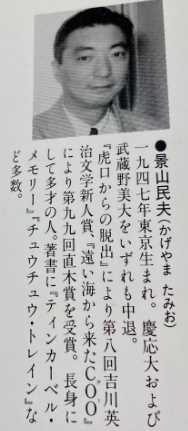 ●景山民夫(かげやま たみお)
一九四七年東京生まれ。慶応大および
武蔵野美大をいずれも中退。
『虎口からの脱出』により第八回吉川英
治文学新人賞、『遠い海から来たCOO』
により第九九回直木賞を受賞。長身に
して多才の人。著書に『ティンカーベル・
メモリー』『チュウチュウ・トレイン』な
ど多数。